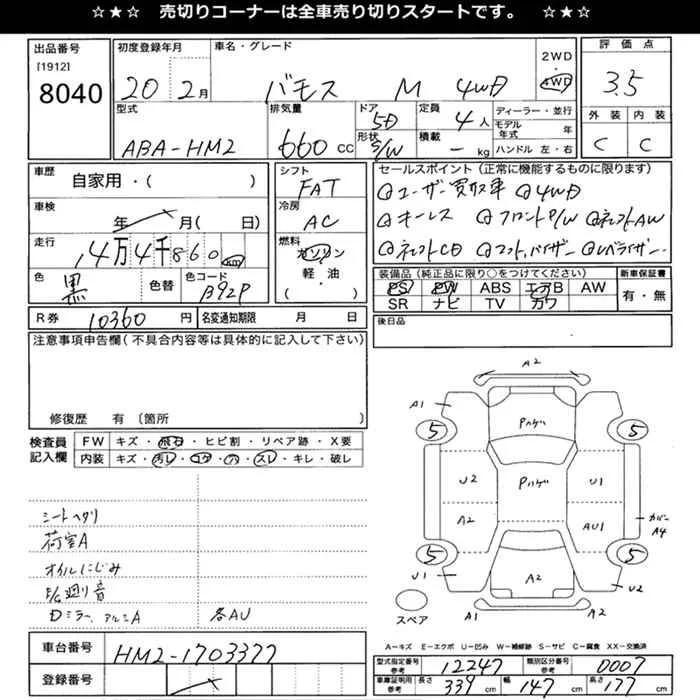 ☆★☆ 売切りコーナーは全車売り切りスタートです。 ☆★☆
出品番号 初度登録年月 車名・グレード 2WD 評価点
[1912]
8040 20 2月 バモス M 4WD 4WD 3.5
型式 排気量 ドア 5D 定員 ディーラー・並行 外装 内装
ABA-HM2 660 CC 形状 S/W 4人 モデル年式 年 C C
積載 - kg ハンドル 左・右
車歴 自家用・( ) シフト FAT セールスポイント(正常に機能するものに限ります)
車検 年 月( 日) 冷房 AC ユーザー買取車 4WD
走行 14万4千860 km 燃料 ガソリン キーレス フロントP/W
軽・油 ( ・ )
色 黒 色替 色コード B92P
装備品(純正品に限り○をつけてください) 新車保証書
PS PW ABS エアB AW 有・無
SR ナビ TV カワ
R券 10360 円 名変通知期限 月 日 後日品
注意事項申告欄(不具合内容等は具体的に記入して下さい)
修復歴 有〔箇所
検査員 FW キズ・飛石・ヒビ割・リペア跡・X要
記入欄 内装 キズ・汚レ・コゲ・穴・スレ・キレ・破レ
シートヘタリ
荷室A
オイルにじみ
足廻り音
Dミラー、アルミA 各AU
A2
A1
5 Pハゲ 5
U2 Pハゲ U1
A2 AU1 カバーA4
5 5
U1 A2 U2
A1 A2
スペア
A-キズ E-エクボ U-凹み W-補修跡 S-サビ C-腐食 XX-交換済
車台番号 HM2-1703377
型式指定番号 参考 12247 類別区分番号 参考 0007
登録番号
車庫証明用 参考 長さ 339 cm 幅 147 cm 高さ 177 cm